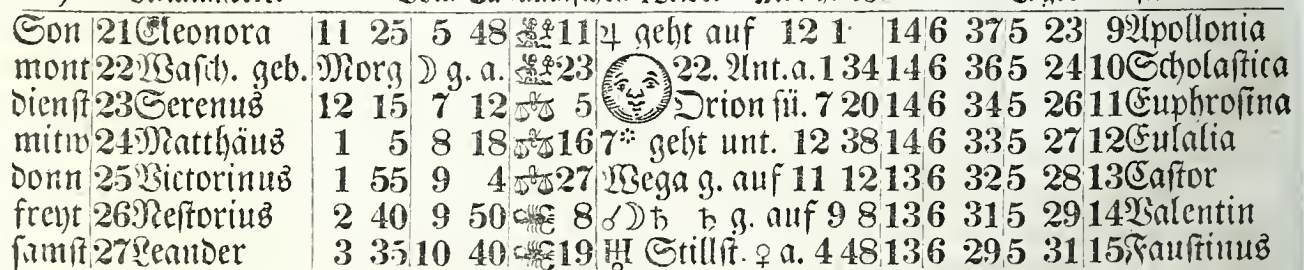 Son 21 Eleonora 11 25 5 48 11 ♃ geht auf 12 1 14 6 37 5 23 9 Apollonia
mont 22 Wasch. geb. Morg ☽ g. a. 23 22. Ant. a. 1 34 14 6 36 5 24 10 Scholastica
dienst 23 Serenus 12 15 7 12 ♎ 5 Orion sü. 7 20 14 6 34 5 26 11 Euphrosina
mitw 24 Matthäus 1 5 8 18 ♎ 16 7* geht unt. 12 38 14 6 33 5 27 12 Eulalia
donn 25 Victorinus 1 55 9 4 ♎ 27 Wega g. auf 11 12 13 6 32 5 28 13 Castor
freyt 26 Nestorius 2 40 9 50 ♏ 8 ☌ ☽ ♄ ♄ g. auf 9 8 13 6 31 5 29 14 Valentin
samst 27 Leander 3 35 10 40 ♏ 19 ♅ Stillst. ♀ a. 4 48 13 6 29 5 31 15 Faustinus